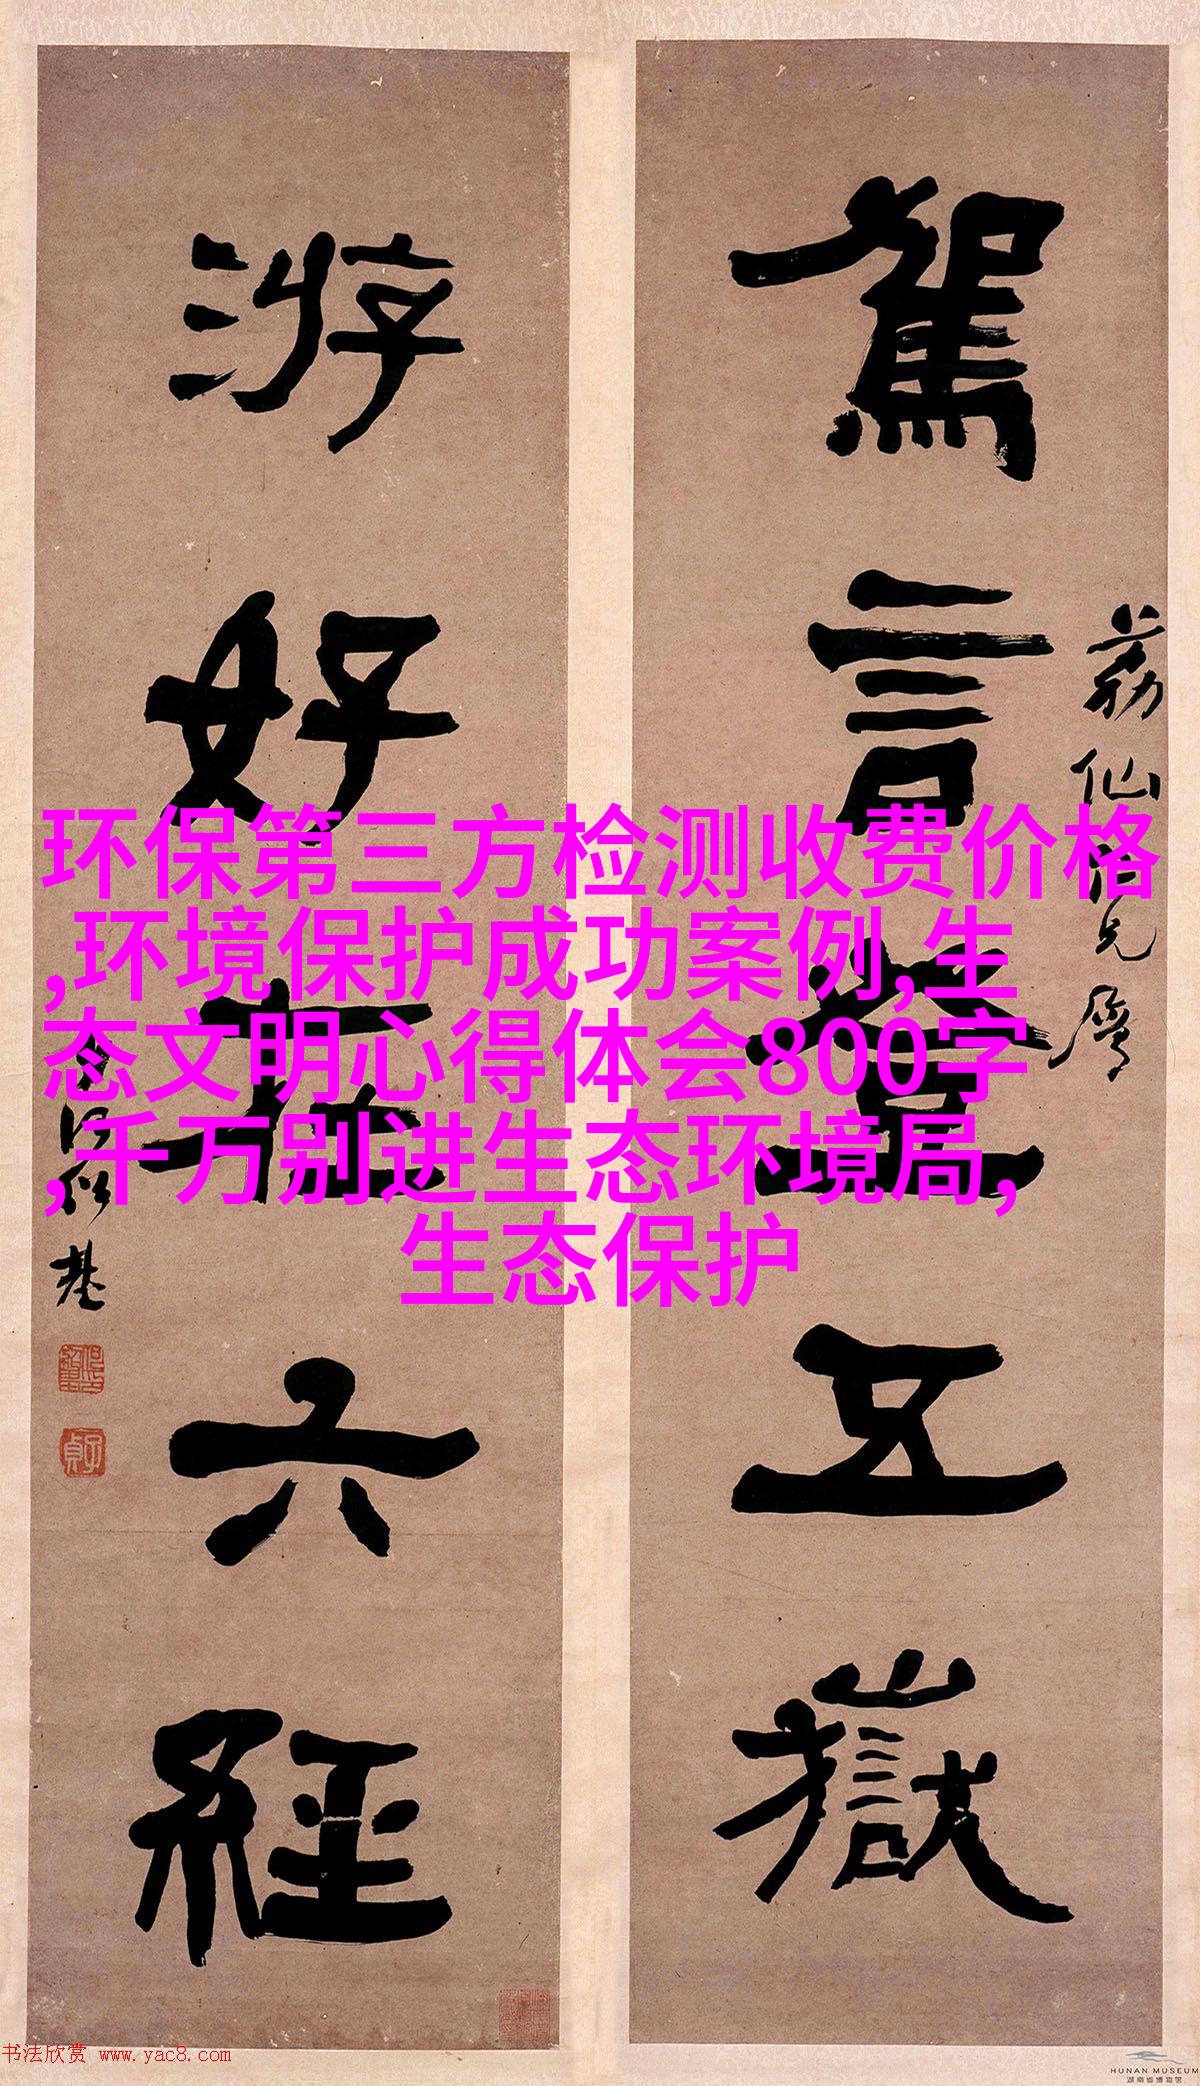 駕言登五嶽
荔仙仁兄屬
游好在六經
何紹基
子貞
环保第三方检测收费价格
,环境保护成功案例,生
态文明心得体会800字
,千万别进生态环境局,
生态保护
书法欣赏 www.yac8.com
HUNAN MUSEUM
湖南省博物馆